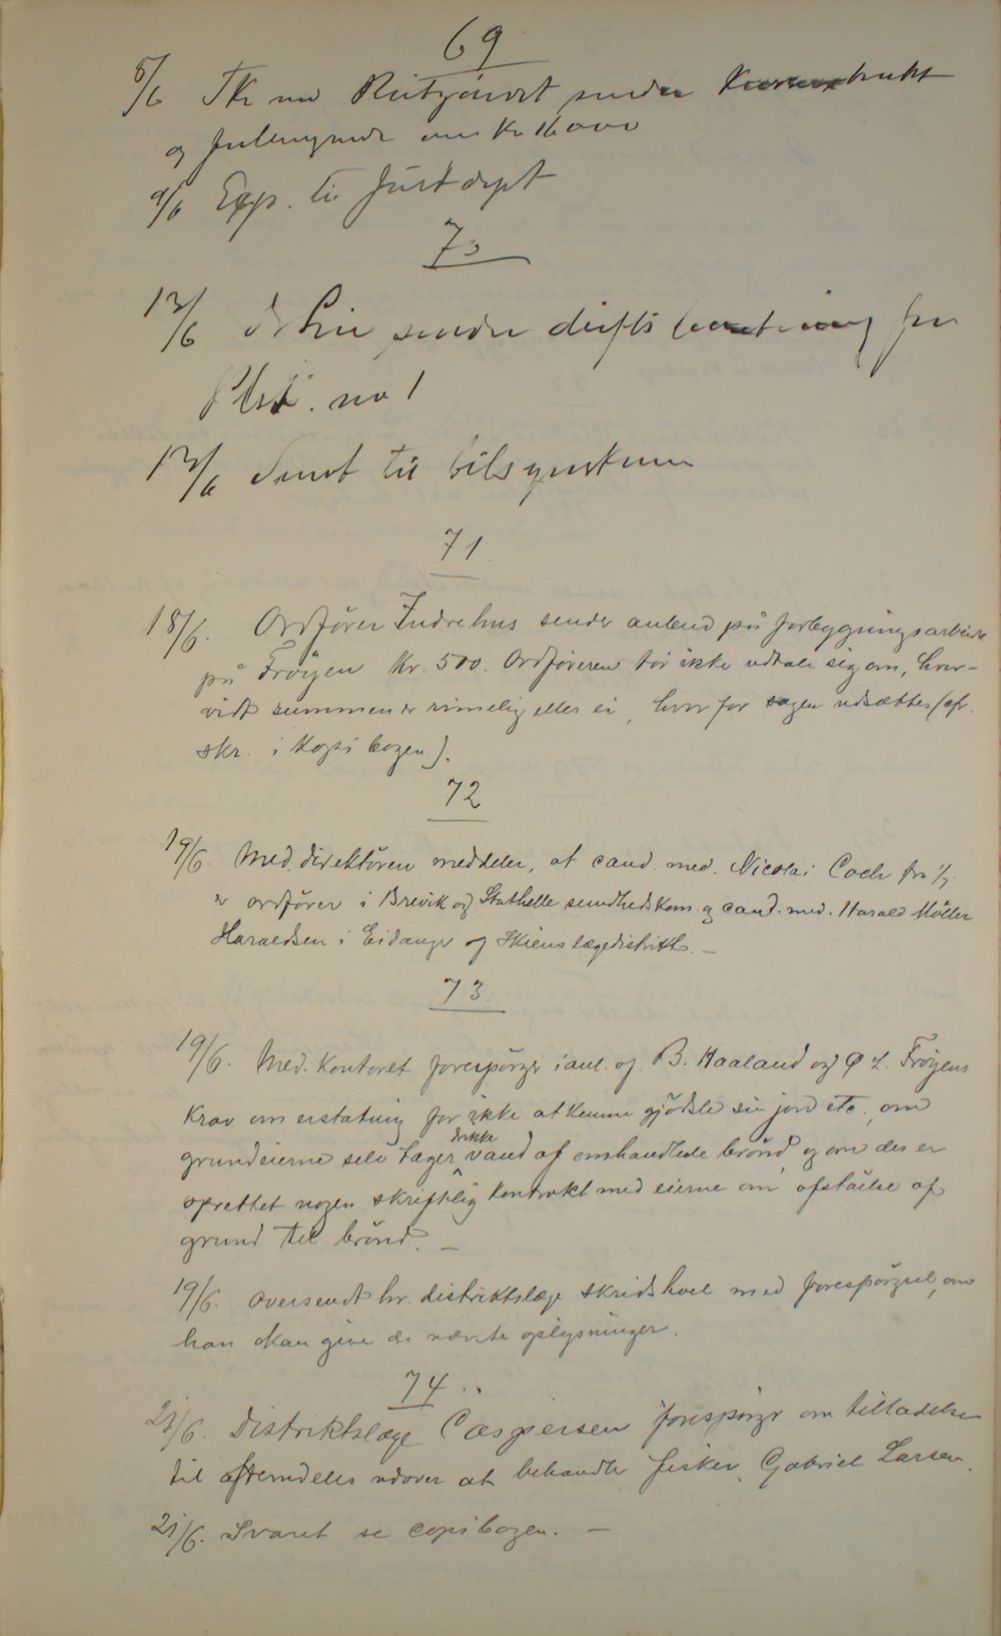 69
5/6 sender
og
9/6 Exp. til Justdept
70
12/6 sender drifts for
no 1
12/6 Sendt til bilsynskom
71
18/6. Ordfører Indrehus sender anbud på forbygningsarbeide
på Frøyen Kr. 500. Ordføreren tør ikke udtale sig om, hvor-
vidt summen er rimelig eller ei, hvorfor sagen udsættes (cfr.
skr. i kopibogen).
72
19/6. Med. direktøren meddeler, at cand. med. Nicolai Coch fra 1/7
er ordfører i Brevik og Stathelle sundhedskom. og cand. med. Harald Møller
Haraldsen i Eidanger og Skiens lægedistrikt. —
73.
19/6. Med. Kontoret forespørger i anl. af B. Haaland og Ø. L. Frøyens
Krav om erstatning for ikke at kunne gjødsle sin jord etc., om
grundeierne selv tager drikkevand af omhandlede brønd og om der er
oprettet nogen skriftlig kontrakt med eierne om afståelse af
grund til brønd. —
19/6. oversendt hr. distriktslæge Skridshoel med forespørgsel, om
han kan give de nævnte oplysninger.
74
21/6. Distriktslæge Caspersen forespørger om tilladelse
til fremdeles udover at behandle fisker Gabriel Larsen.
21/6. Svaret se copibogen. —